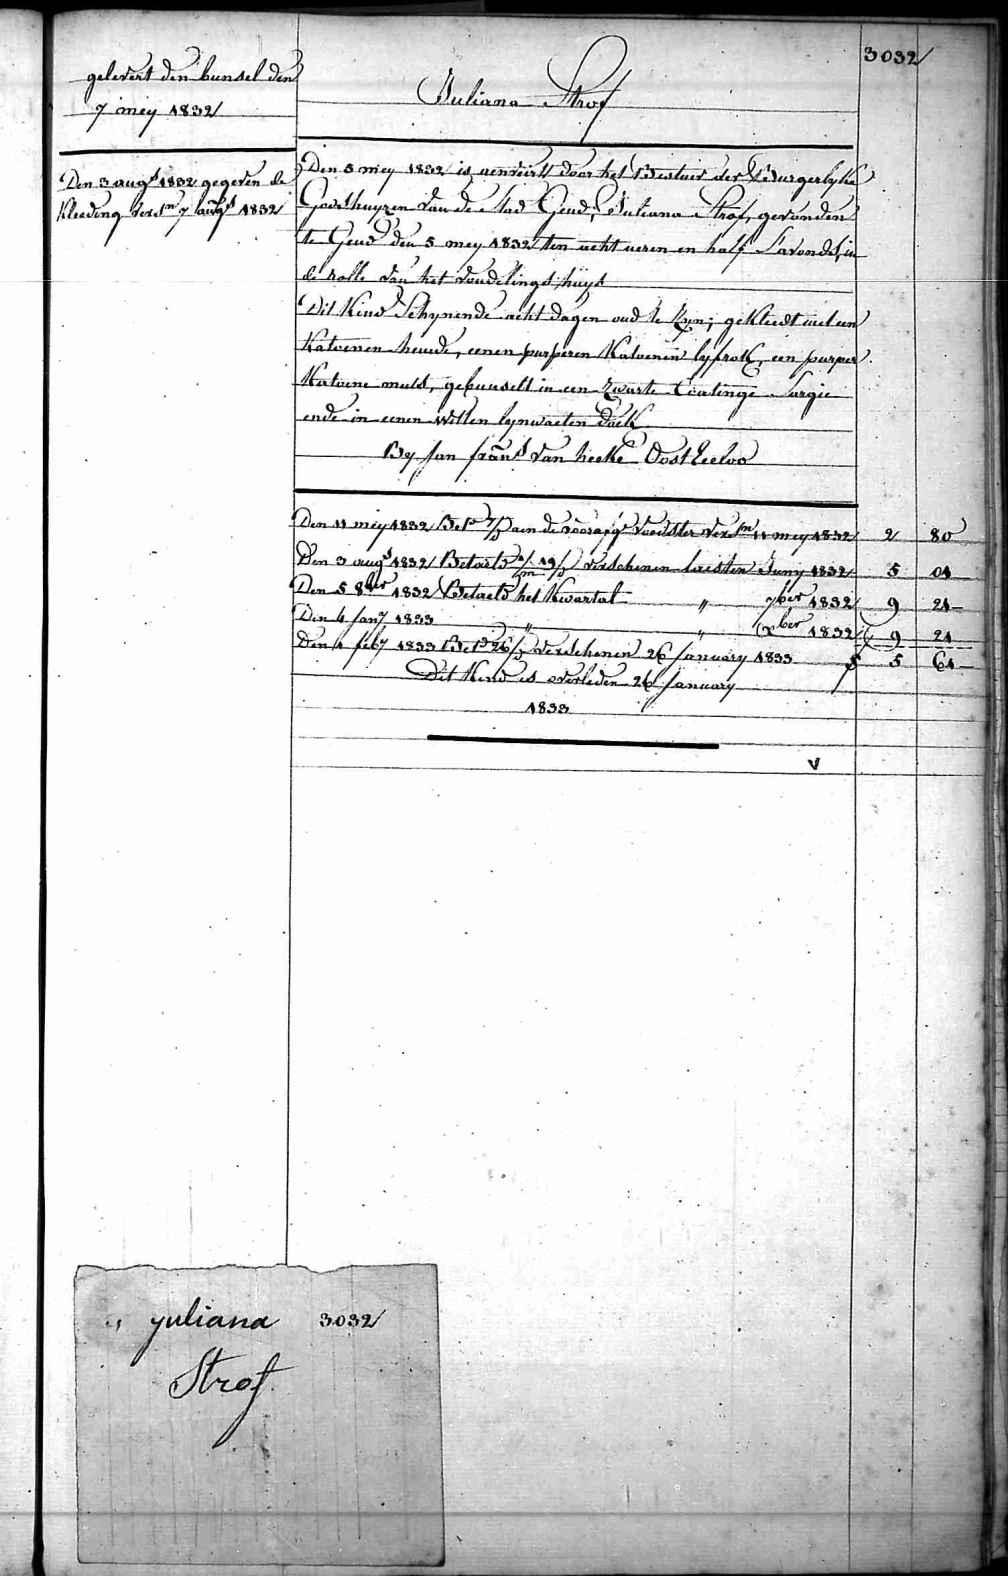 3032
gelevert den bunsel den
7 mey 1832
Juliana Strof
Den 3 augs 1832 gegeven de
kleeding versn 7 augs 1832
Den 5 mey 1832 is aenveirt door het Bestuer der Burgerlyke
Godshuyzen van de stad Gend, Juliana Strof, gevonden
te Gend den 5 mey 1832 ten acht ueren en half s'avonds, in
de rolle van het vondelings huys
Dit Kind Schynende acht dagen oud te zyn; gekleedt met een
Katoenen hemde, eenen purperen Katoenen lyfrok, een purper
Katoene muts, gebunselt in een zwarte Coatinge Sargie
ende in eenen witten lynwaeten doek
By Jan frans van heeke Oost Eecloo
Den 11 mey 1832 Betd aen de voorzg voedster versn 11 mey 1832 2 80
Den 3 augs 1832 Betaeld verschenen laesten Juny 1832 5 04
Den 5 8ber 1832 Betaeld het Kwartal " 7ber 1832 9 21
Den 4 Jany 1833 " " xber 1832 9 21
Den 1 feby 1833 Betd 26/ verschenen 26 January 1833 5 61
Dit Kind is overleden 26 January
1833
v
" juliana 3032
Strof